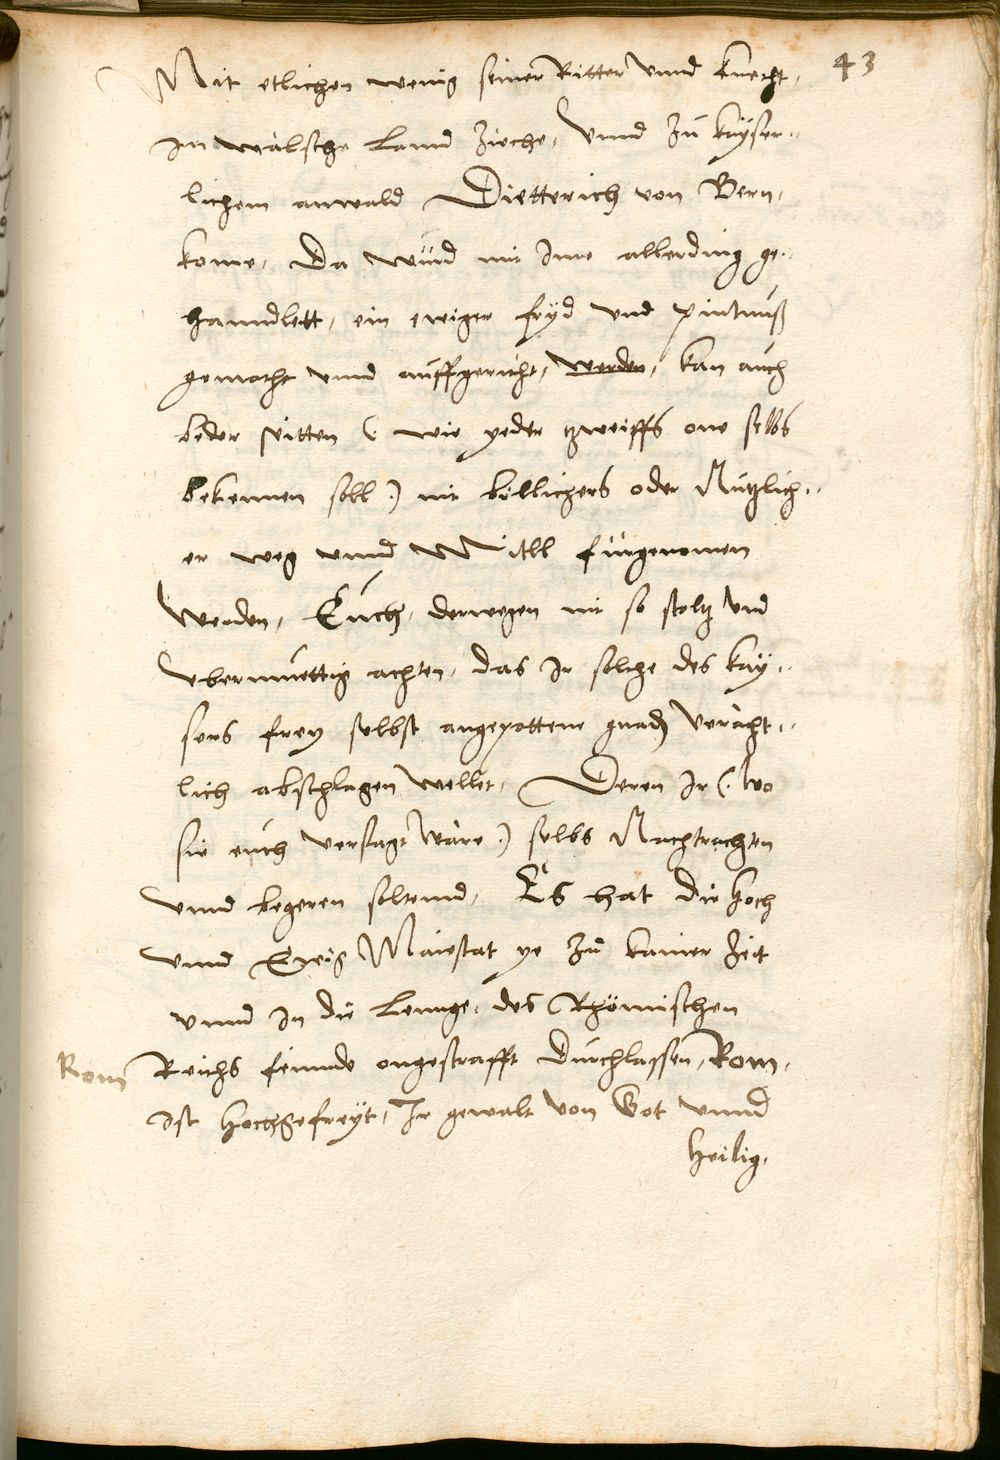 43
Mit etlichen wenig seiner Ritter vnnd knecht,
im wälsche Lannd zieche, Vnnd zu kayser-
lichem anwald Dietterich von Bern,
kome, Da wurd mit Jme allerding ge-
hanndlett, ein ewiger fryd vnd pintnuß
gemacht vnnd auffgericht, werden, kan auch
beder seitten (: wie yeder zweiffls one selbs
bekennen soll :) nit billichers oder Nutzlich-
er weg vnnd Mittl fürgenomen
werden, Euch, derwegen nit so stoltz vnd
vbermuettig achten, das Jr solche des kay-
sers frey selbst angepottene gnad veracht-
lich abschlagen wellet, Deren Jr (: wo
sie euch versagt wäre :) selbs Nachtrachten
vnnd begeren soltennd, Es hat die hoch
vnnd Ewig Maiestat ye zu kainer Zeit
vnnd in die Lennge, des Rhömischen
Rom
Reichs feinnde ongestrafft Durchlassen, Rom,
ist hochgefreyt, Jr gewalt von Got vnnd
heilig,